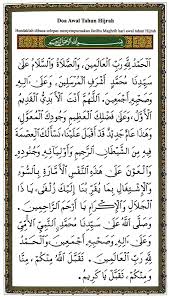 Doa Awal Tahun Hijrah
Hendaklah dibaca selepas menyempurnakan fardhu Maghrib hari awal tahun Hijrah
بِسْمِ اللَّهِ الرَّحْمَنِ الرَّحِيمِ
اَلْحَمْدُ لِلَّهِ رَبِّ الْعَالَمِينَ، وَالصَّلَاةُ وَالسَّلَامُ عَلَى
سَيِّدِنَا مُحَمَّدٍ أَشْرَفِ الْمُرْسَلِينَ، وَعَلَى آلِهِ
وَصَحْبِهِ أَجْمَعِينَ. اَللَّهُمَّ أَنْتَ الْأَبَدِيُّ الْقَدِيمُ
الْأَوَّلُ، وَعَلَى فَضْلِكَ الْعَظِيمِ وَجُودِكَ الْمُعَوَّلُ،
وَهَذَا عَامٌ جَدِيدٌ قَدْ أَقْبَلَ، نَسْأَلُكَ الْعِصْمَةَ
فِيهِ مِنَ الشَّيْطَانِ الرَّجِيمِ وَأَوْلِيَائِهِ وَجُنُودِهِ
وَالْعَوْنَ عَلَى هَذِهِ النَّفْسِ الْأَمَّارَةِ بِالسُّوءِ
وَالْاِشْتِغَالَ بِمَا يُقَرِّبُنَا إِلَيْكَ زُلْفَى، يَا ذَا
الْجَلَالِ وَالْإِكْرَامِ يَا أَرْحَمَ الرَّاحِمِينَ
وَصَلَّى اللَّهُ عَلَى سَيِّدِنَا مُحَمَّدٍ النَّبِيِّ الْأُمِّيِّ
وَعَلَى آلِهِ وَصَحْبِهِ أَجْمَعِينَ، وَالْحَمْدُ
لِلَّهِ رَبِّ الْعَالَمِينَ. تَقَبَّلْ مِنَّا
وَمِنْكُمْ، تَقَبَّلْ يَا كَرِيمُ.